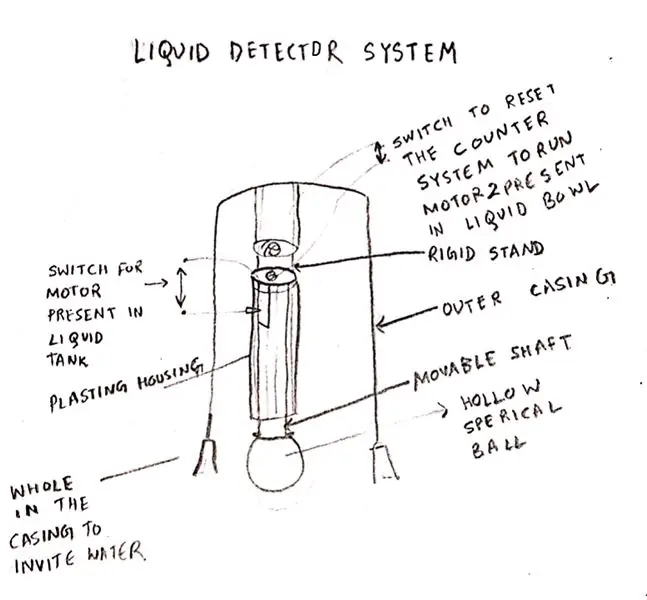 LIQUID DETECTOR SYSTEM
SWITCH TO RESET
THE COUNTER
SYSTEM TO RUN
MOTOR 2 PRESENT
IN LIQUID BOWL
RIGID STAND
SWITCH FOR
MOTOR
PRESENT IN
LIQUID
TANK
OUTER CASING
PLASTING HOUSING
MOVABLE SHAFT
HOLLOW
SPERICAL
BALL
WHOLE
IN THE
CASING TO
INVITE WATER